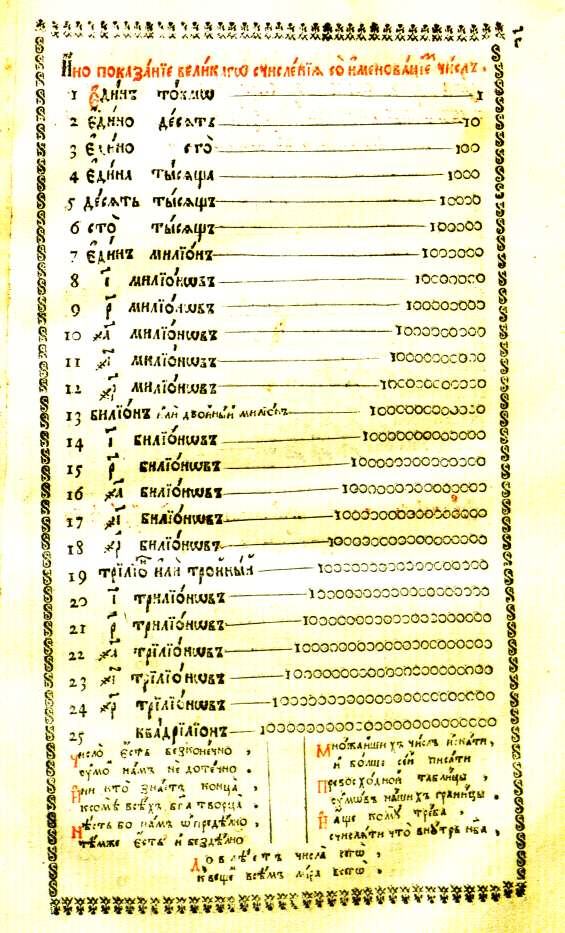 Ино показа́нїе вели́кагѡ счисле́нїѧ со̀ и҆менова́нїемъ чи́слъ.
1 Е҆ди́нъ то́кмѡ 1
2 є҆ди́но де́сѧть 10
3 є҆ди́но сто̀ 100
4 є҆ди́на ты́сѧща 1000
5 де́сѧть ты́сѧщъ 10000
6 сто̀ ты́сѧщъ 100000
7 є҆ди́нъ милїо́нъ 1000000
8 і҃ милїо́нѡвъ 10000000
9 р҃ милїо́нѡвъ 100000000
10 ҂а҃ милїо́нѡвъ 1000000000
11 ҂і҃ милїо́нѡвъ 10000000000
12 ҂р҃ милїо́нѡвъ 100000000000
13 билїо́нъ и҆лѝ двойны́й милїо́нъ 1000000000000
14 і҃ билїо́нѡвъ 10000000000000
15 р҃ билїо́нѡвъ 100000000000000
16 ҂а҃ билїо́нѡвъ 1000000000000000
17 ҂і҃ билїо́нѡвъ 10000000000000000
18 ҂р҃ билїо́нѡвъ 100000000000000000
19 трїлїо́нъ и҆лѝ тройны́й 1000000000000000000
20 і҃ трилїо́нѡвъ 10000000000000000000
21 р҃ трилїо́нѡвъ 100000000000000000000
22 ҂а҃ трїлїо́нѡвъ 1000000000000000000000
23 ҂і҃ трїлїо́нѡвъ 10000000000000000000000
24 ҂р҃ трїлїо́нѡвъ 100000000000000000000000
25 ква́дрїлїонъ 1000000000000000000000000
Число̀ є҆́сть безконе́чно,
оу҆мо́мъ на́мъ не дото́чно,
И҆ никто̀ зна́етъ конца̀,
кромѣ̀ всѣ́хъ бг҃а творца̀.
Нѣ́сть бо на́мъ ѡ҆предѣ́лно,
тѣ́мже є҆́сть и҆ бездѣ́лно
Мно́жайшихъ чи́слъ и҆ска́ти,
и҆ бо́лше сеѧ̀ писа́ти
Превосхо́дной табли́цы,
оу҆мѡ́въ на́шихъ грани́цы.
И҆ а҆́ще кому̀ тре́ба,
счислѧ́ти что̀ внꙋ́трь нб҃а,
Довлѣ́етъ числа̀ сегѡ̀,
к веще́мъ всѣ́мъ мі́ра всегѡ̀.